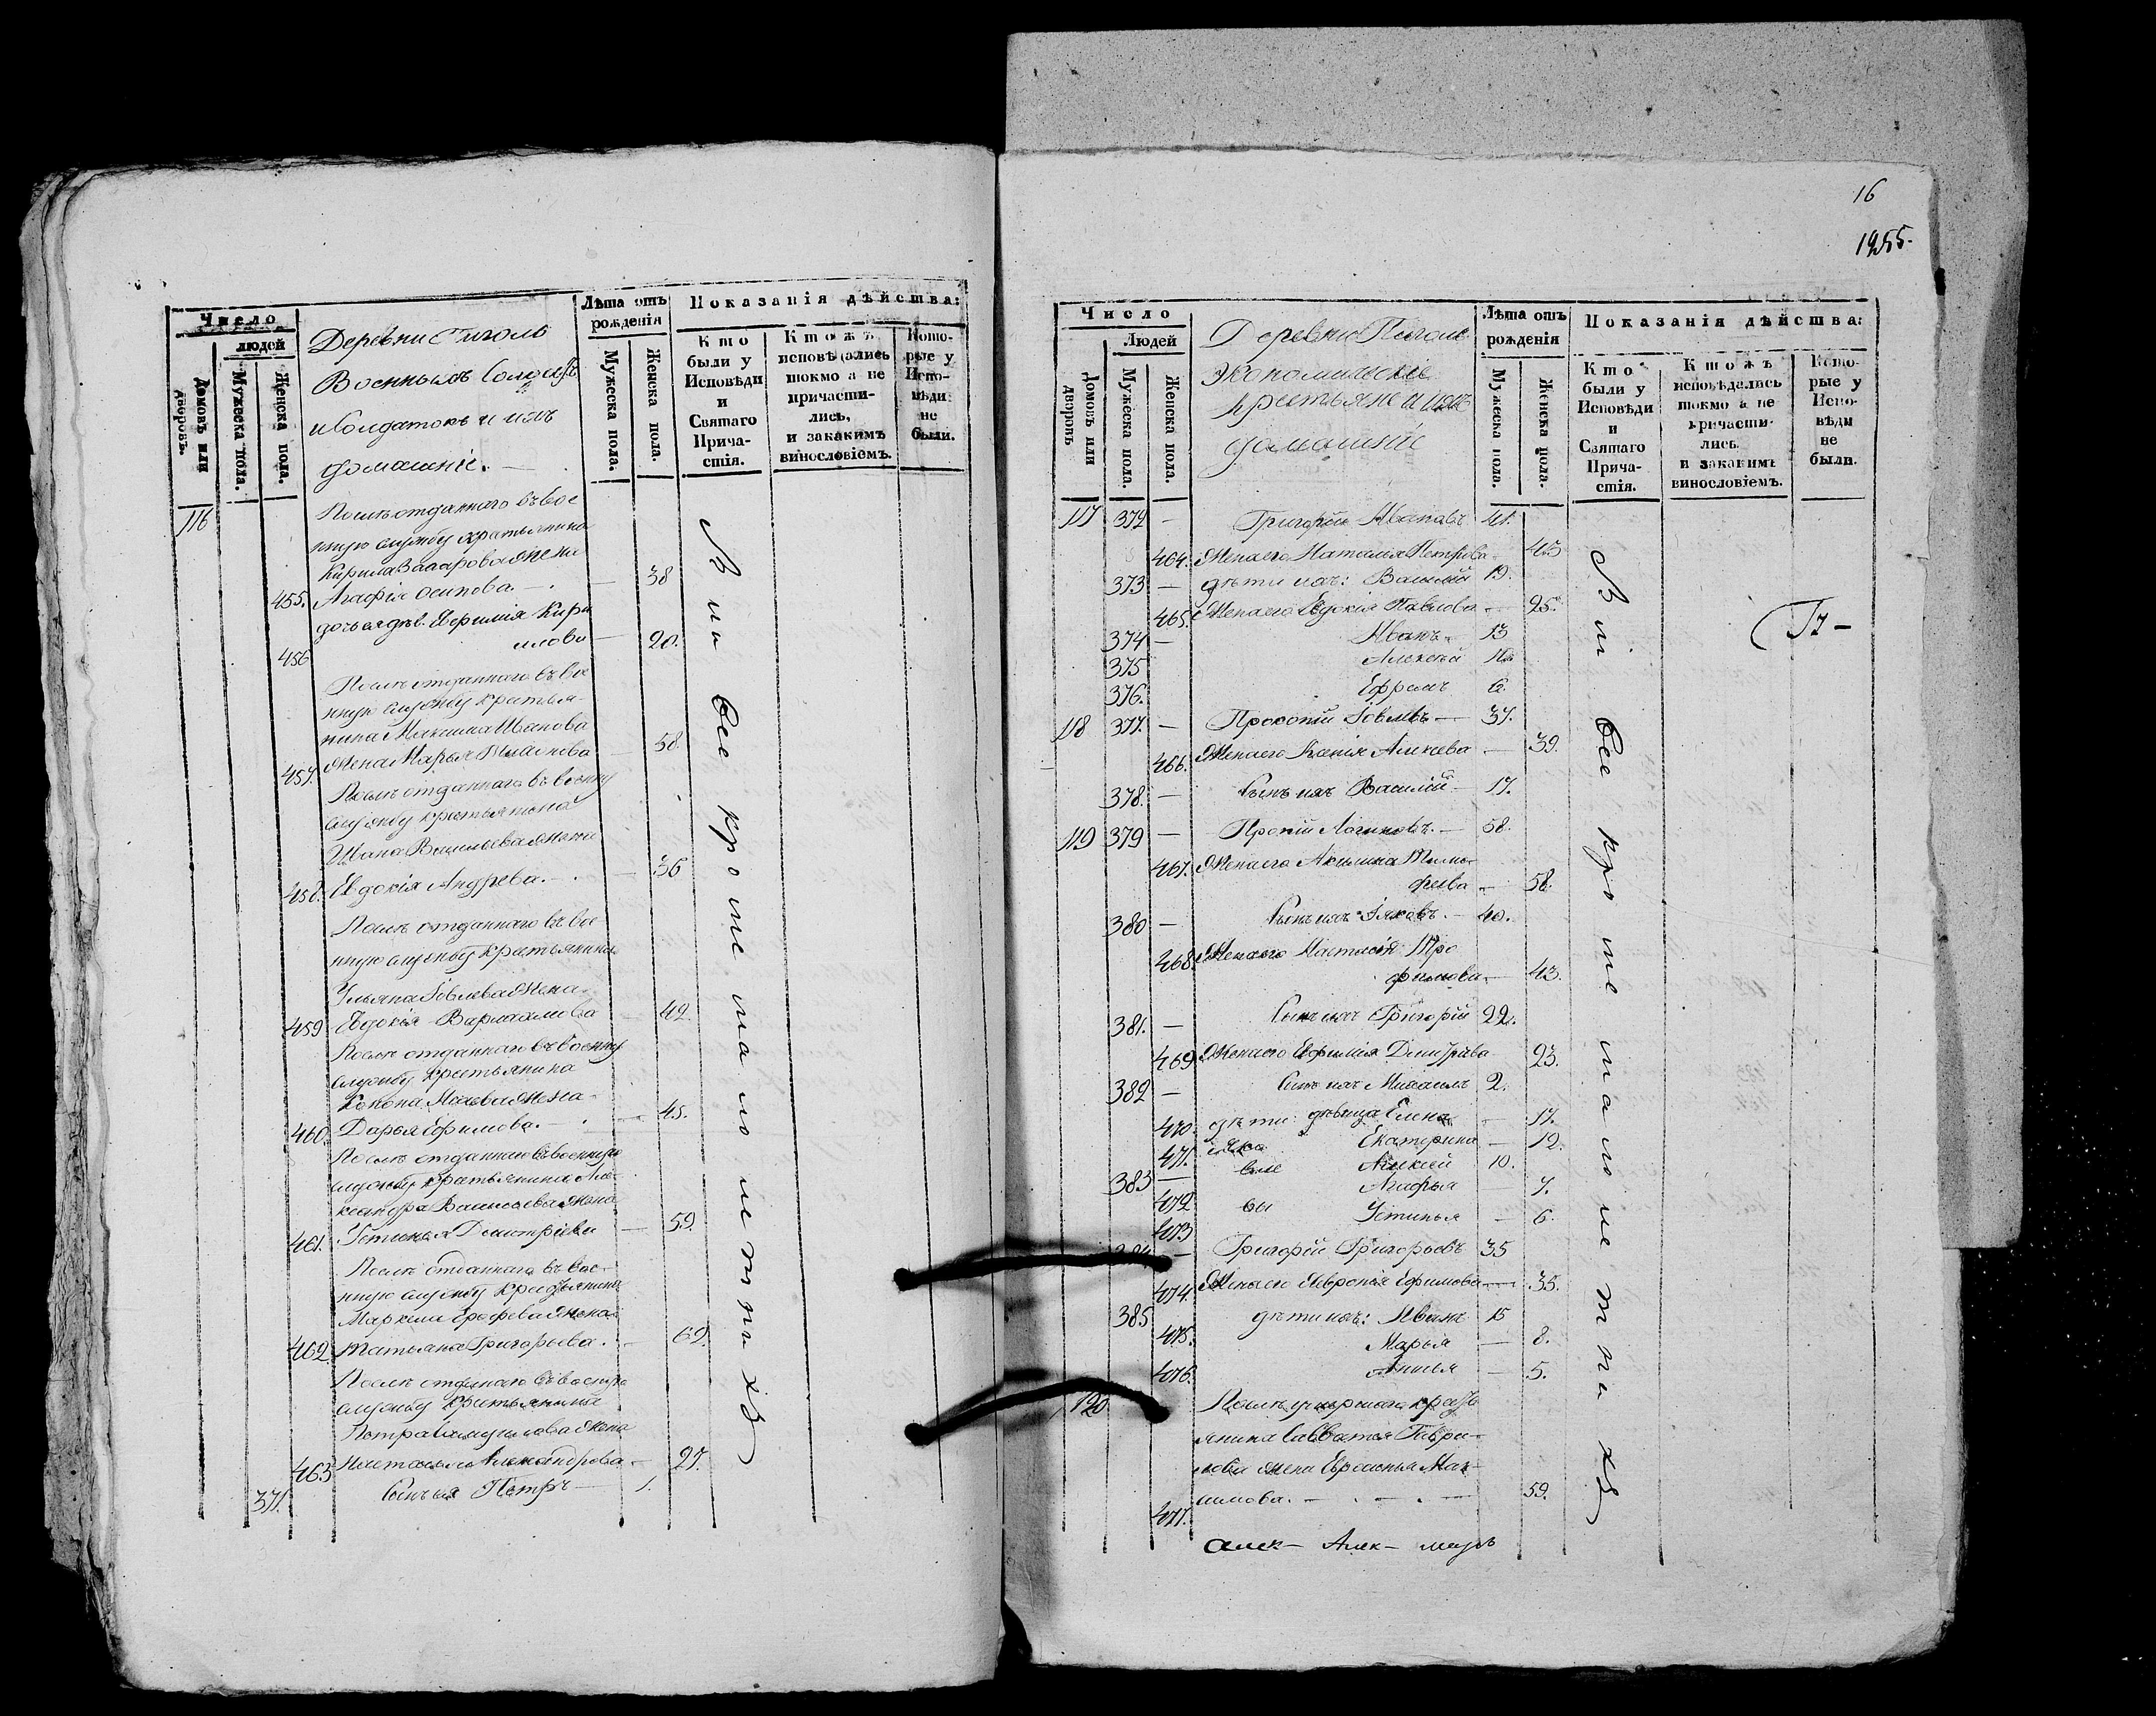 Число
людей
Домовъ или дворовъ.
Мужеска пола.
Женска пола.
Деревни
Военныхъ Солдатъ
и Солдатокъ и ихъ
домашніе.
Лѣта отъ рожденія
Мужеска пола.
Женска пола.
Показанія дѣйства:
Кто были у Исповѣди и Святаго Причастія.
Ктожъ исповѣдались токмо а не причастились, и закакимъ винословіемъ.
Которые у Исповѣди не были.
116
Послѣ отданнаго въ вое
нную службу крестьянина
Кирила Захарова жена
455. Агафія Осипова. — 38
дочь ея дѣв. Евфимія Кири
456 лова — 20.
Послѣ отданнаго въ вое
нную службу крестья-
нина Максима Иванова
457. жена Марья — 58
Послѣ отданнаго въ военну
службу крестьянина
Ивана Васильева жена
458. Евдокія Андрева. — 36
Послѣ отданнаго въ вое
нную службу крестьянина
Ульяна Іовлева жена
459 Евдокія Варламова — 42
Послѣ отданнаго въ военну
службу крестьянина
жена
460. Дарья Ефимова. — 45.
Послѣ отданнаго въ военную
службу крестьянина Але
ксандра Васильева жена
461. Устинья Дмитріева — 59.
Послѣ отданнаго въ вое-
нную службу крестьянина
Маркела Ерофева жена
462 Татьяна Григорьева. — 62.
Послѣ отданнаго въ военную
службу крестьянина
Петра Самуилова жена
463 Настасья Александрова — 27.
371. Сынъ ея Петръ — 1.
Вси все кроме малолетнихъ
16
1255.
Число
Людей
Домовъ или дворовъ
Мужеска пола.
Женска пола.
Деревни
Экономическіе
крестьяне и ихъ
домашніе
Лѣта отъ рожденія
Мужеска пола.
Женска пола.
Показанія дѣйства:
Кто были у Исповѣди и Святаго Причастія.
Ктожъ исповѣдались токмо а не причастились. и закакимъ винословіемъ.
Которые у Исповѣди не были.
117 372 — Григорій Ивановъ 41.
464. Жена его Наталья Петрова — 45
373 — дѣти ихъ: Василій 19.
465. Жена его Евдокія Павлова — 25.
374 — Иванъ 13
375 Алексѣй
376. Ефремъ 6.
118 377. — Прокопій Іовлевъ — 37.
466. Жена его Ксенія Алексева — 39.
378. — Сынъ ихъ Василій — 17.
119 379 — Логиновъ. — 58.
467. Жена его Акилина Тимо-
феева — 58.
380 — Сынъ ихъ Іяковъ. — 40.
468. Жена его Настасія Тро
фимова — 43.
381. — Сынъ ихъ Григорій 22.
469 Жена его Евфимія Дмитріева 23.
382 — Сынъ ихъ Михаилъ 2.
470. дѣти: дѣвица Елена — 17.
471. іяко Екатерина — 12.
383 — вле Алексей 10.
472 вы Агафья — 7.
473 Устинья — 6.
— Григорій Григорьевъ 35
474. Жена его Ефимова — 35.
385 дѣти ихъ: Иванъ 15
475. Марья — 8.
476. Анисья — 5.
120 Послѣ умершаго кресть
янина Савватея Гаври-
лова жена Евфимья Мак-
477. симова. — 59.
Вси все кроме малолетнихъ